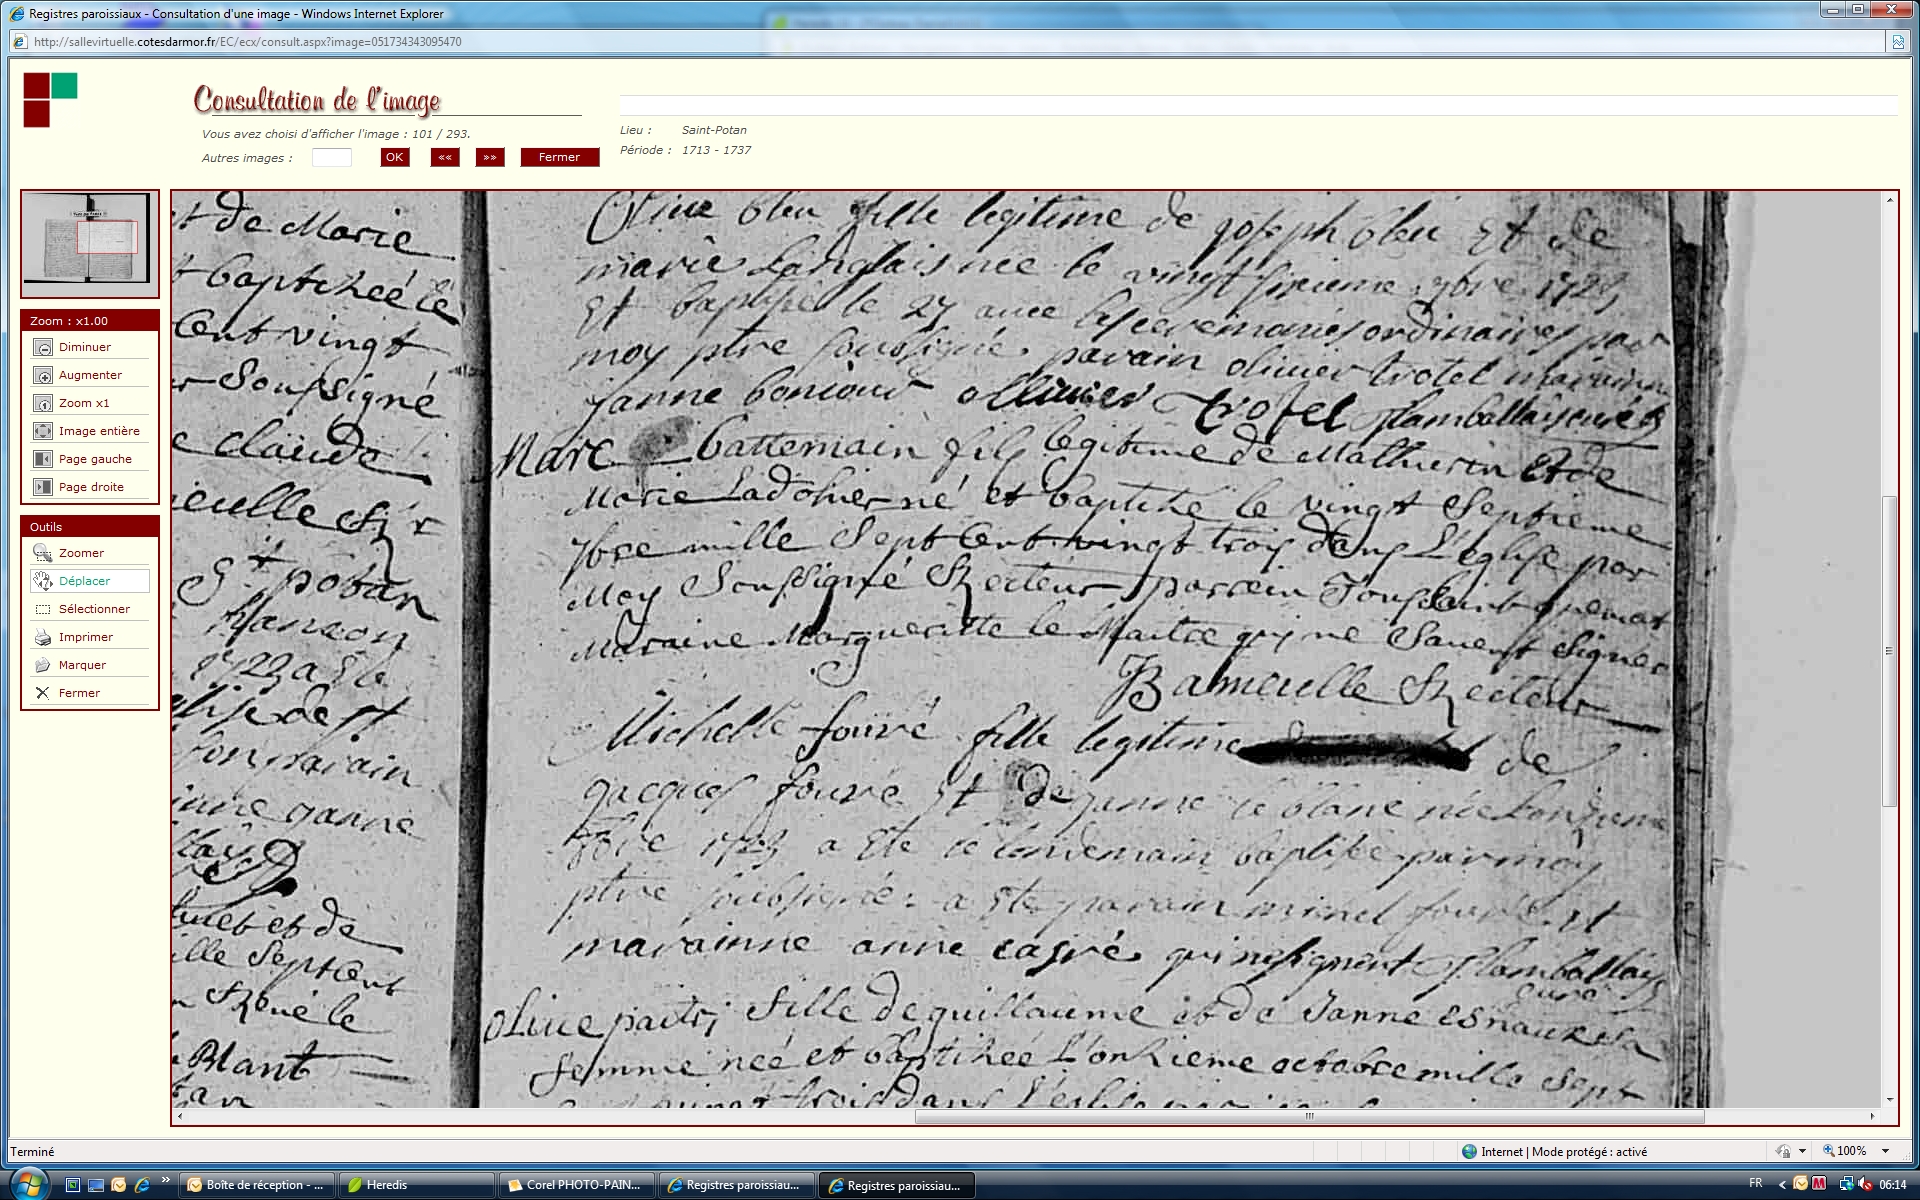 Registres paroissiaux - Consultation d'une image - Windows Internet Explorer
http://sallevirtuelle.cotesdarmor.fr/EC/ecx/consult.aspx?image=051734343095470
Consultation de l'image
Vous avez choisi d'afficher l'image : 101 / 293.
Autres images :
OK
««
»»
Fermer
Lieu : Saint-Potan
Période : 1713 - 1737
Zoom : x1.00
Diminuer
Augmenter
Zoom x1
Image entière
Page gauche
Page droite
Outils
Zoomer
Déplacer
Sélectionner
Imprimer
Marquer
Fermer
t de Marie
baptihée le
Cent vingt
Soussigné
e claude
St potan
1723 a
parain
janne
et de
ille Sept Cent
René le
Blant
Olive bleu fille legitime de joseph bleu Et de
marie Langlais née le vingt sixieme 7bre 1723
Et baptisée le 27 avec les ceremonies ordinaires par
moy ptre soussigné parain olivier trotel maraine
janne bonjour ollivier trotel
Marc battemain fils legitime de Mathurin Et de
Marie Ladohier né et baptihé le vingt Septieme
7bre mille Sept Cent vingt trois dans L'eglise par
Moy Soussigné Recteur parein Toussaint
Maraine Margueritte le Maitre qui ne Savent Signer
Bameulle Recteur
Michelle fouré fille legitime de
jacques fouré Et de janne le blanc née
1723 a Eté le lendemain baptisée par moy
ptre soubsigné a Ete parain michel fouré Et
marainne anne casré qui ne signent
curé
olive paitry fille de guillaume et de Janne Esnaux sa
femme neé et baptizée L'onzieme octobre mille Sept
vingt trois dans L'eglise
Terminé
Internet | Mode protégé : activé
100%
Boîte de réception - ...
Heredis
Corel PHOTO-PAIN...
Registres paroissiau...
Registres paroissiau...
FR
06:14